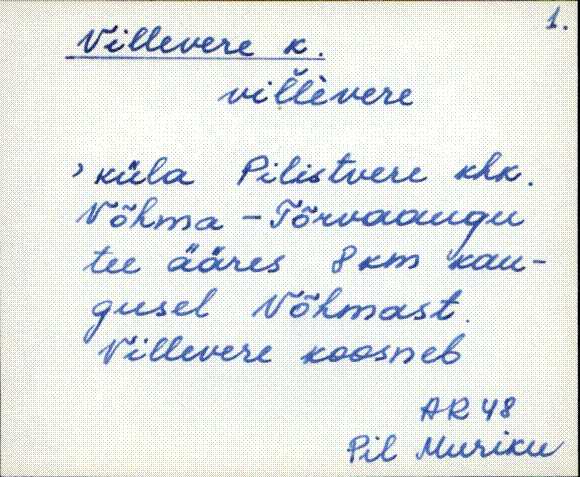 1.
Villevere k.
vil̆l̀evere
, küla Pilistvere khk.
Võhma - Tõrvaaugu
tee ääres 8 km kau-
gusel Võhmast.
Villevere koosneb
AR 48
Pil Muriku